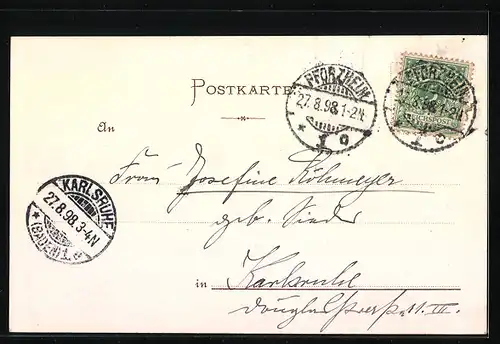 POSTKARTE
PFORZHEIM
27.8.98.1-2N
* 1 c
PFORZHEIM
27.8.98.1-2N
* 1 c
REICHSPOST
An
Frau Josefine
geb.
KARLSRUHE
27.8.98.3-4N
* (BADEN) 1.
in Karlsruhe
Douglasstrasse 11. III.